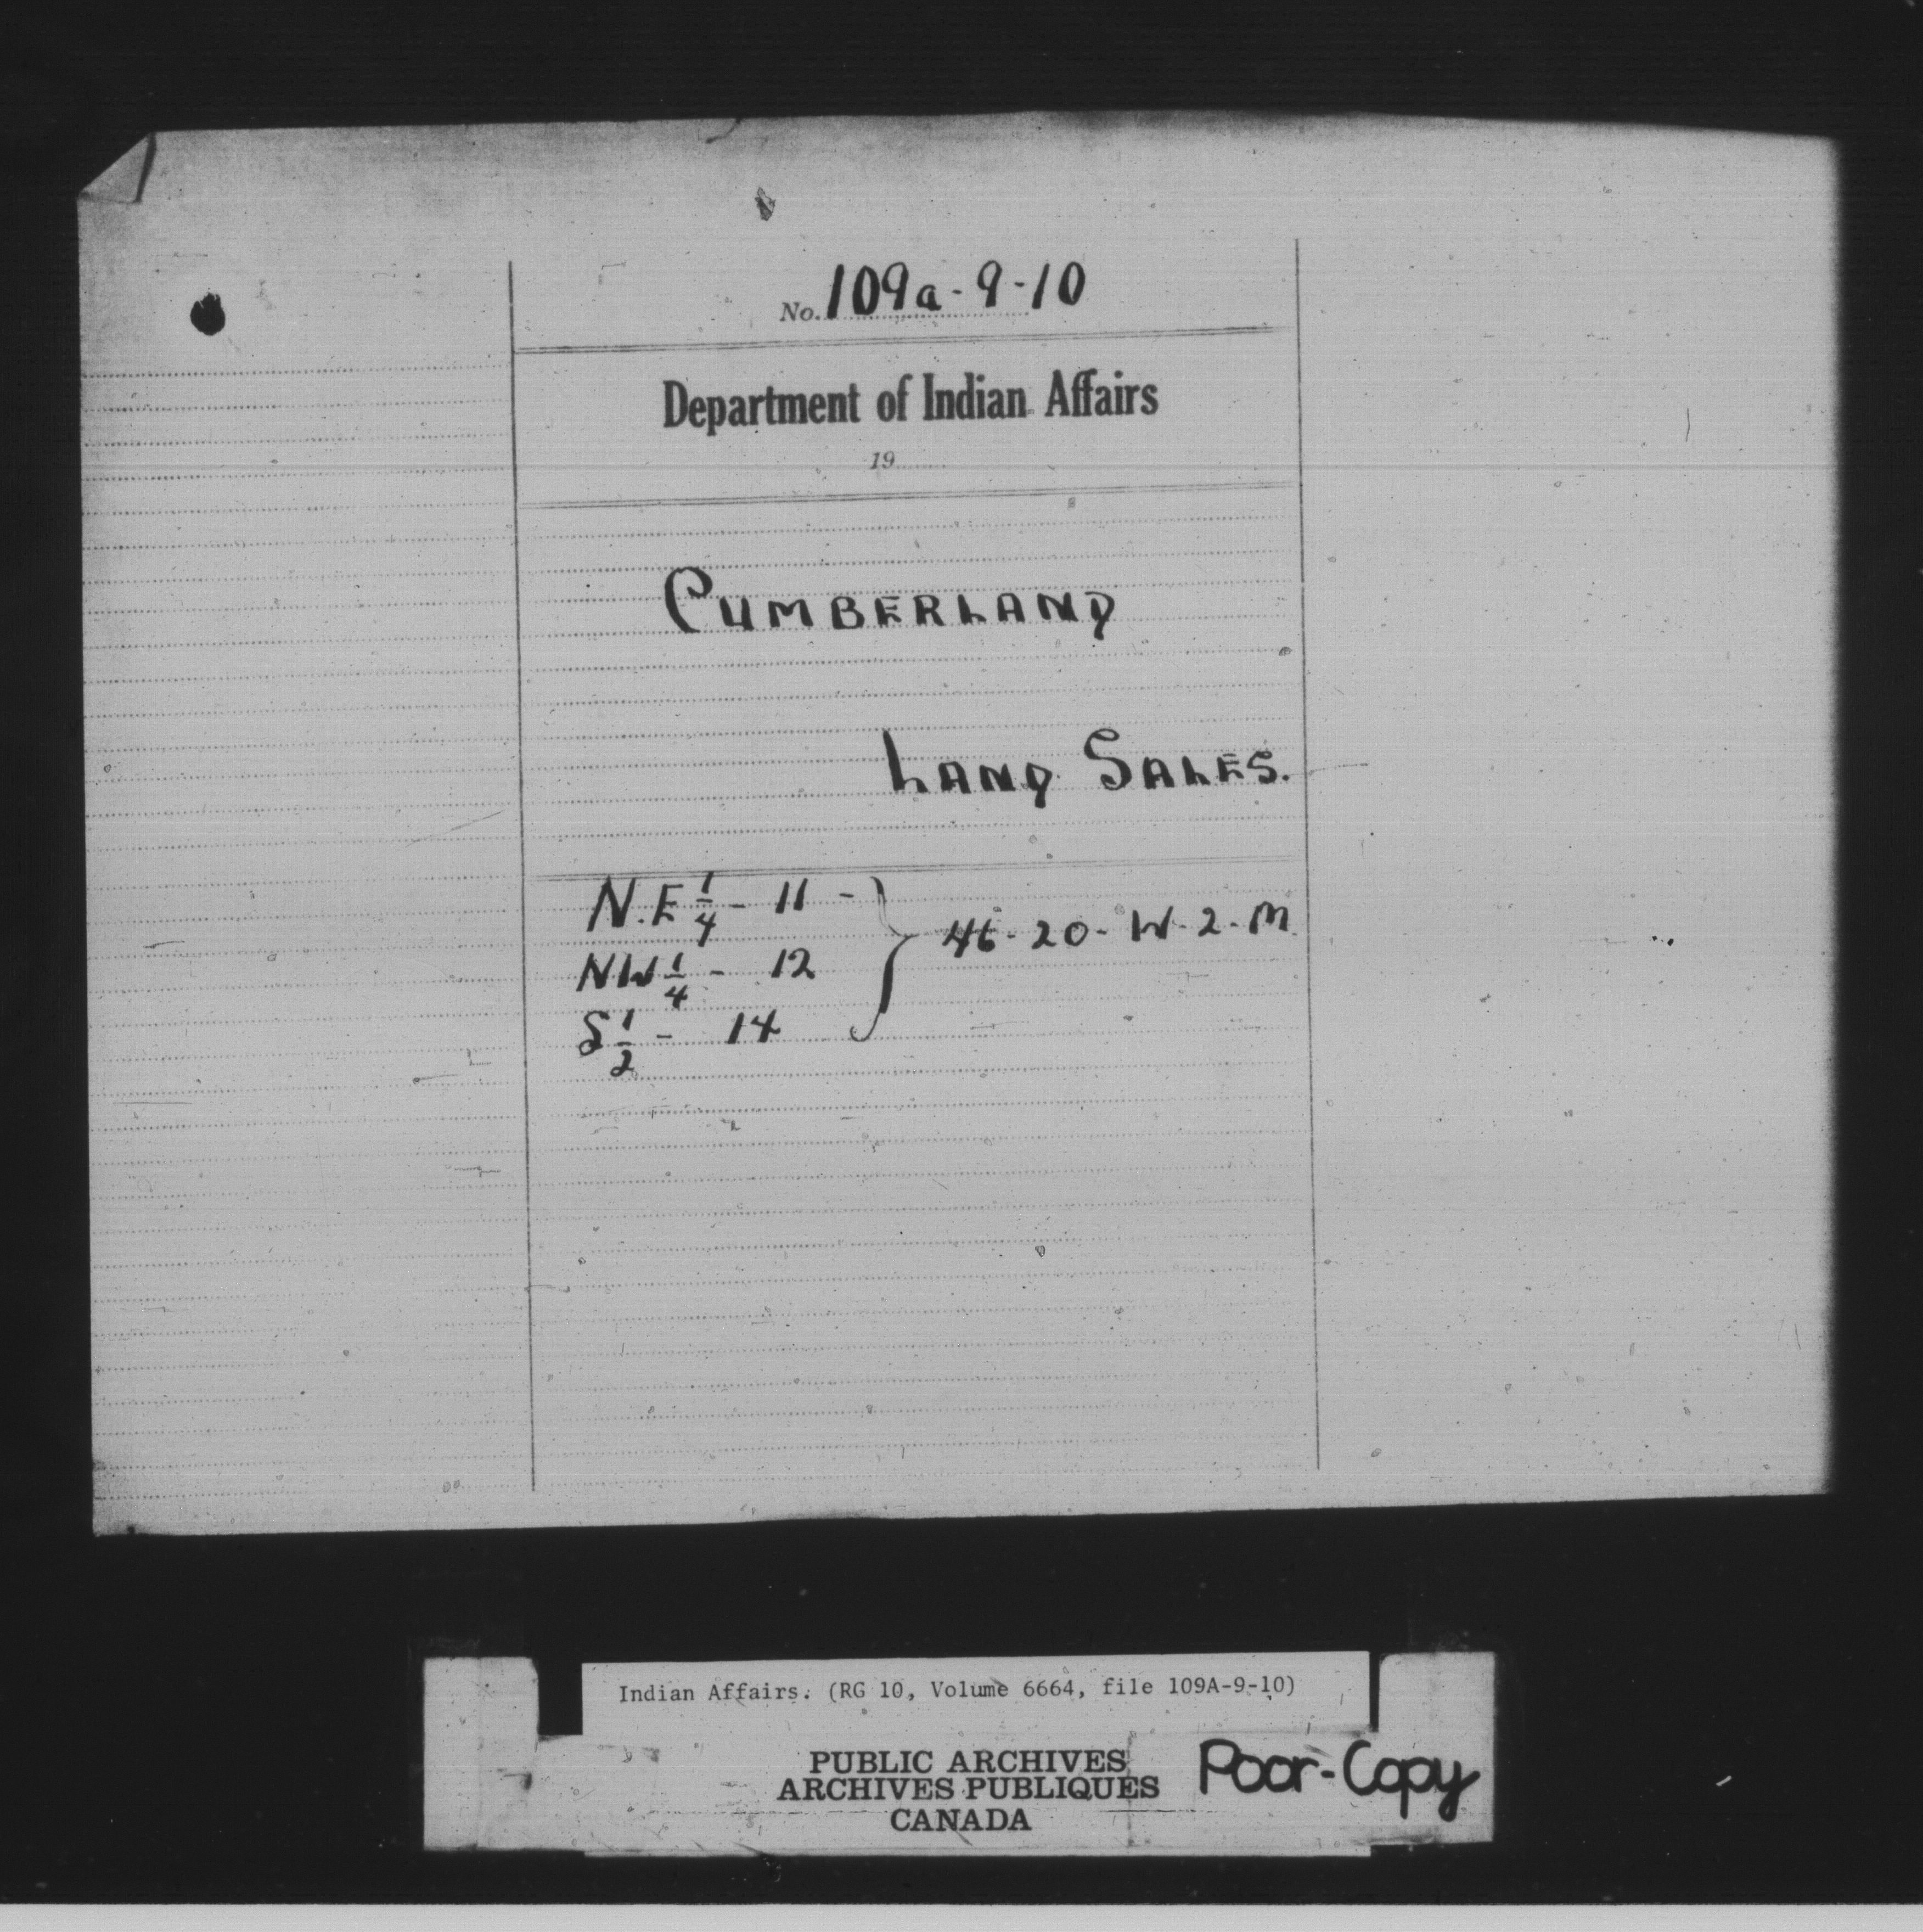 No. 109a-9-10
Department of Indian Affairs
19
CUMBERLAND
LAND SALES.
N.E 1/4 - 11 -
NW 1/4 - 12
S 1/2 - 14
46-20-W-2-M
Indian Affairs. (RG 10, Volume 6664, file 109A-9-10)
PUBLIC ARCHIVES
ARCHIVES PUBLIQUES
CANADA
Poor-Copy